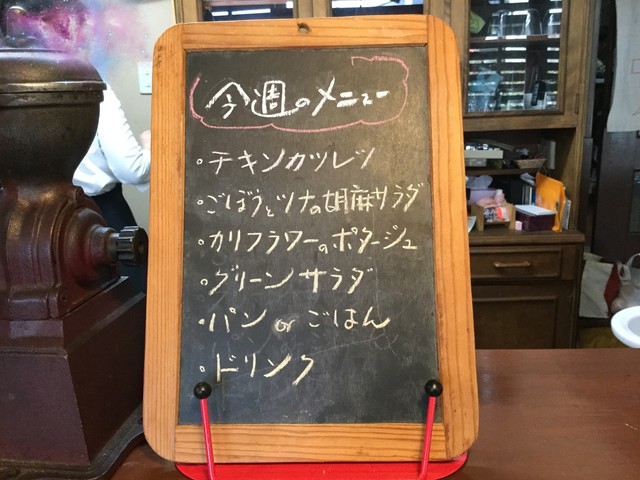 今週のメニュー
・チキンカツレツ
・ごぼうとツナの胡麻サラダ
・カリフラワーのポタージュ
・グリーンサラダ
・パン or ごはん
・ドリンク